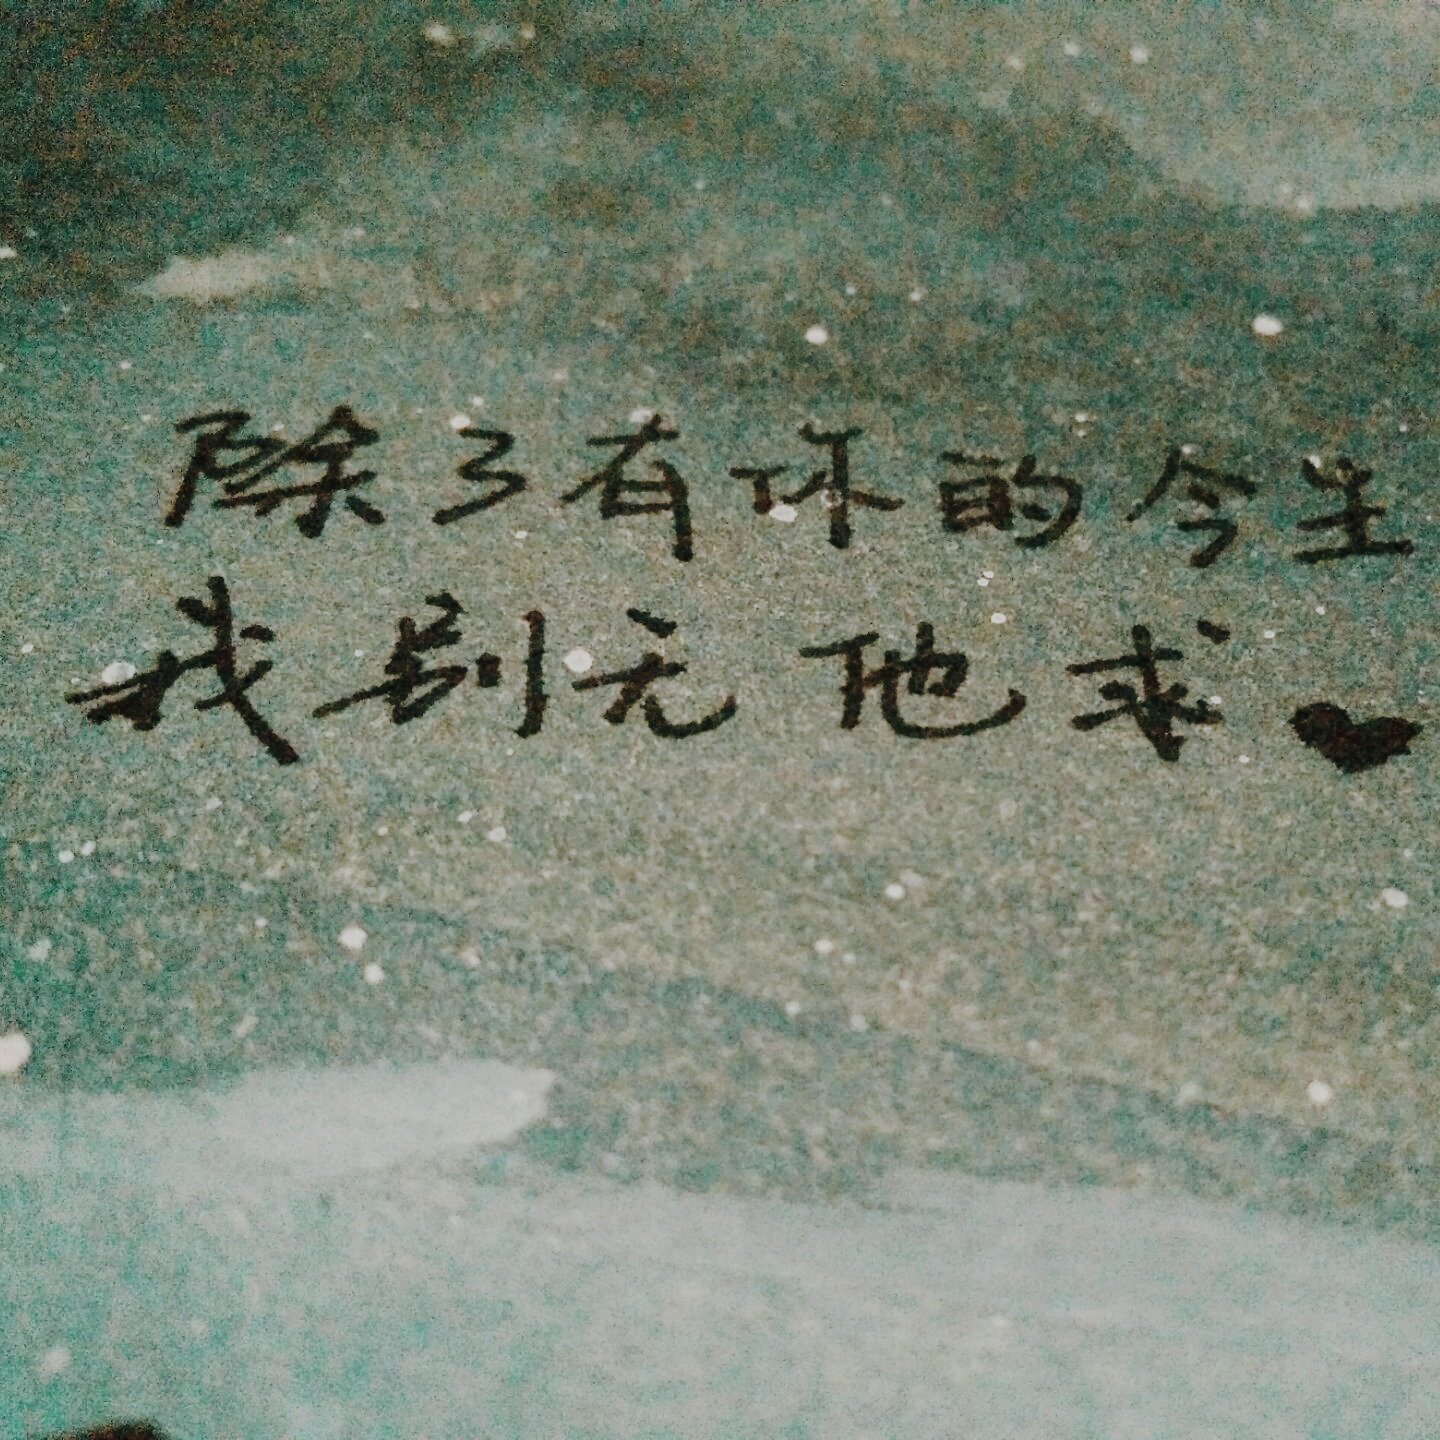 除了有你的今生
我别无他求